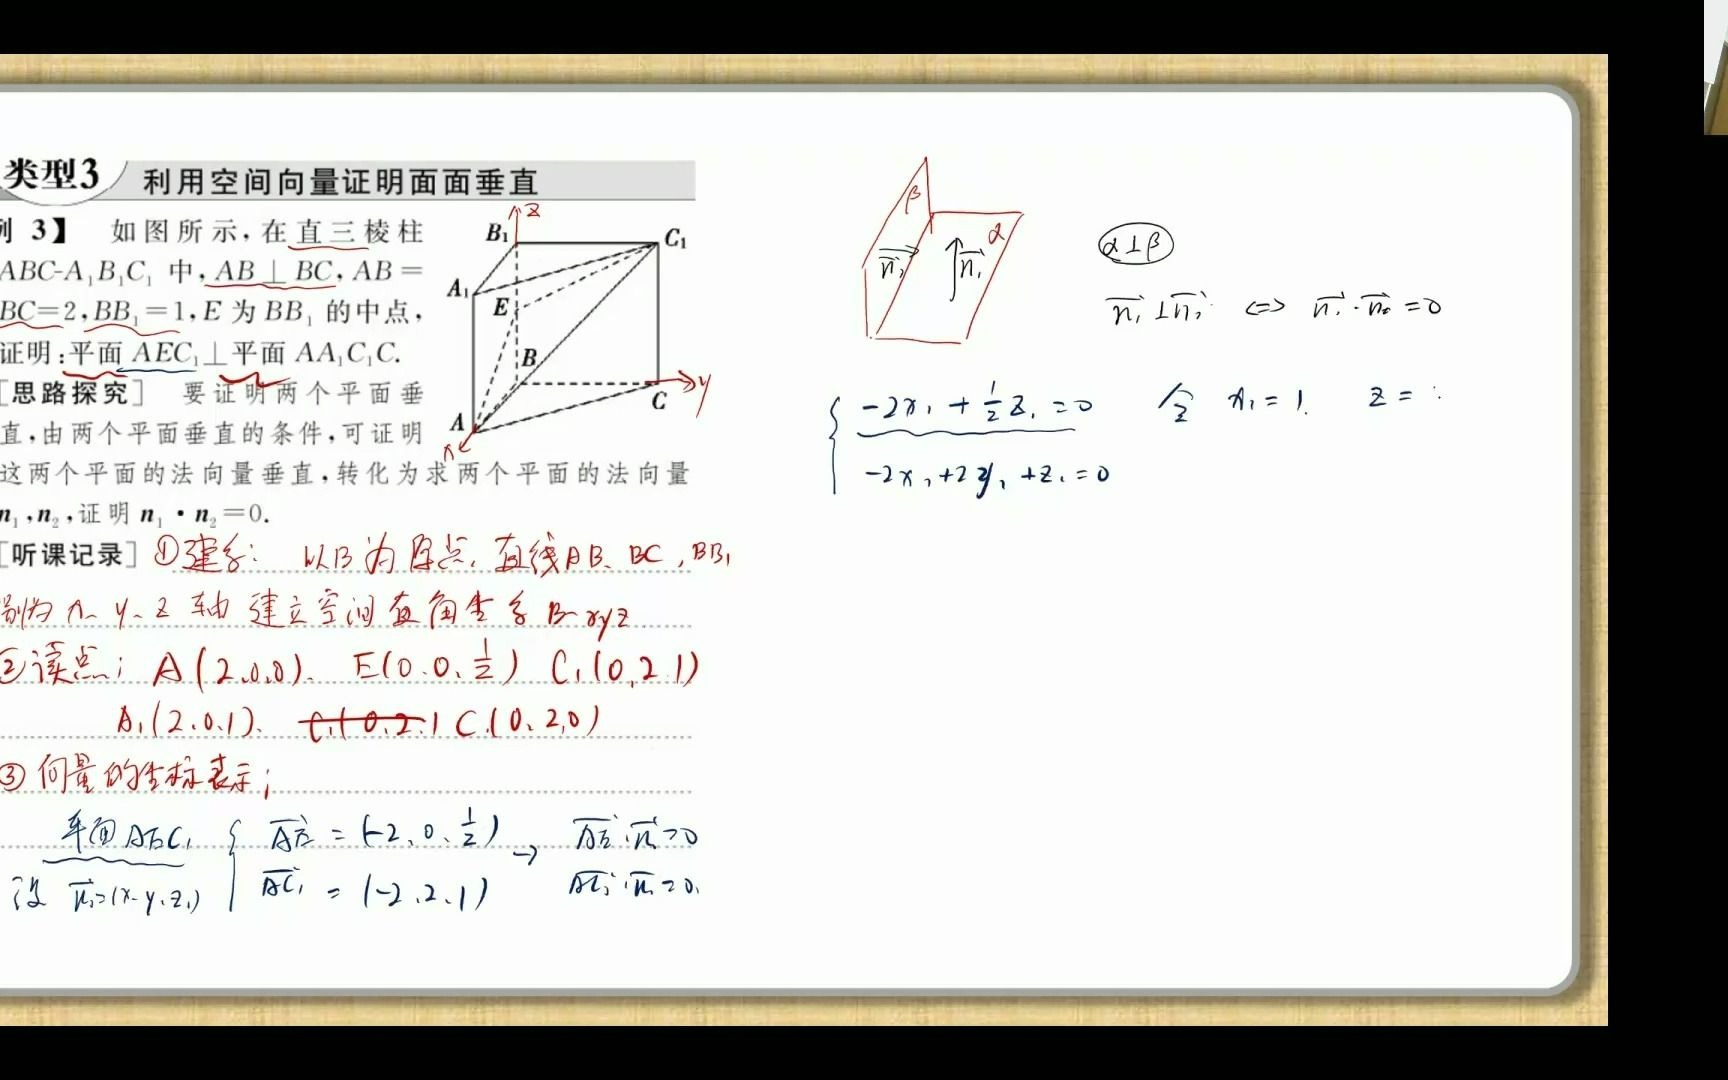 类型3 利用空间向量证明面面垂直
例 3】 如图所示,在直三棱柱
ABC-A₁B₁C₁ 中,AB⊥BC,AB=
BC=2,BB₁=1,E 为 BB₁ 的中点,
证明:平面 AEC₁⊥平面 AA₁C₁C.
[思路探究] 要证明两个平面垂
直,由两个平面垂直的条件,可证明
这两个平面的法向量垂直,转化为求两个平面的法向量
n₁,n₂,证明 n₁·n₂=0.
[听课记录] ①建系: 以B为原点,直线AB、BC,BB₁
别为x、y、z轴 建立空间直角坐系B-xyz
②读点; A(2,0,0)、 E(0,0,1/2) C₁(0,2,1)
A₁(2,0,1)、 C(0,2,0)
③向量的坐标表示;
平面AEC₁ { AE = (-2,0,1/2) → AE·n₁=0
设 n₁=(x₁,y₁,z₁) AC₁ = (-2,2,1) AC₁·n₁=0.
z
B₁
C₁
A₁
E
B
y
C
A
x
β
α
n₂
n₁
α⊥β
n₁⊥n₂ ⇔ n₁·n₂=0
{ -2x₁+1/2z₁=0 令 x₁=1, z=
-2x₁+2y₁+z₁=0